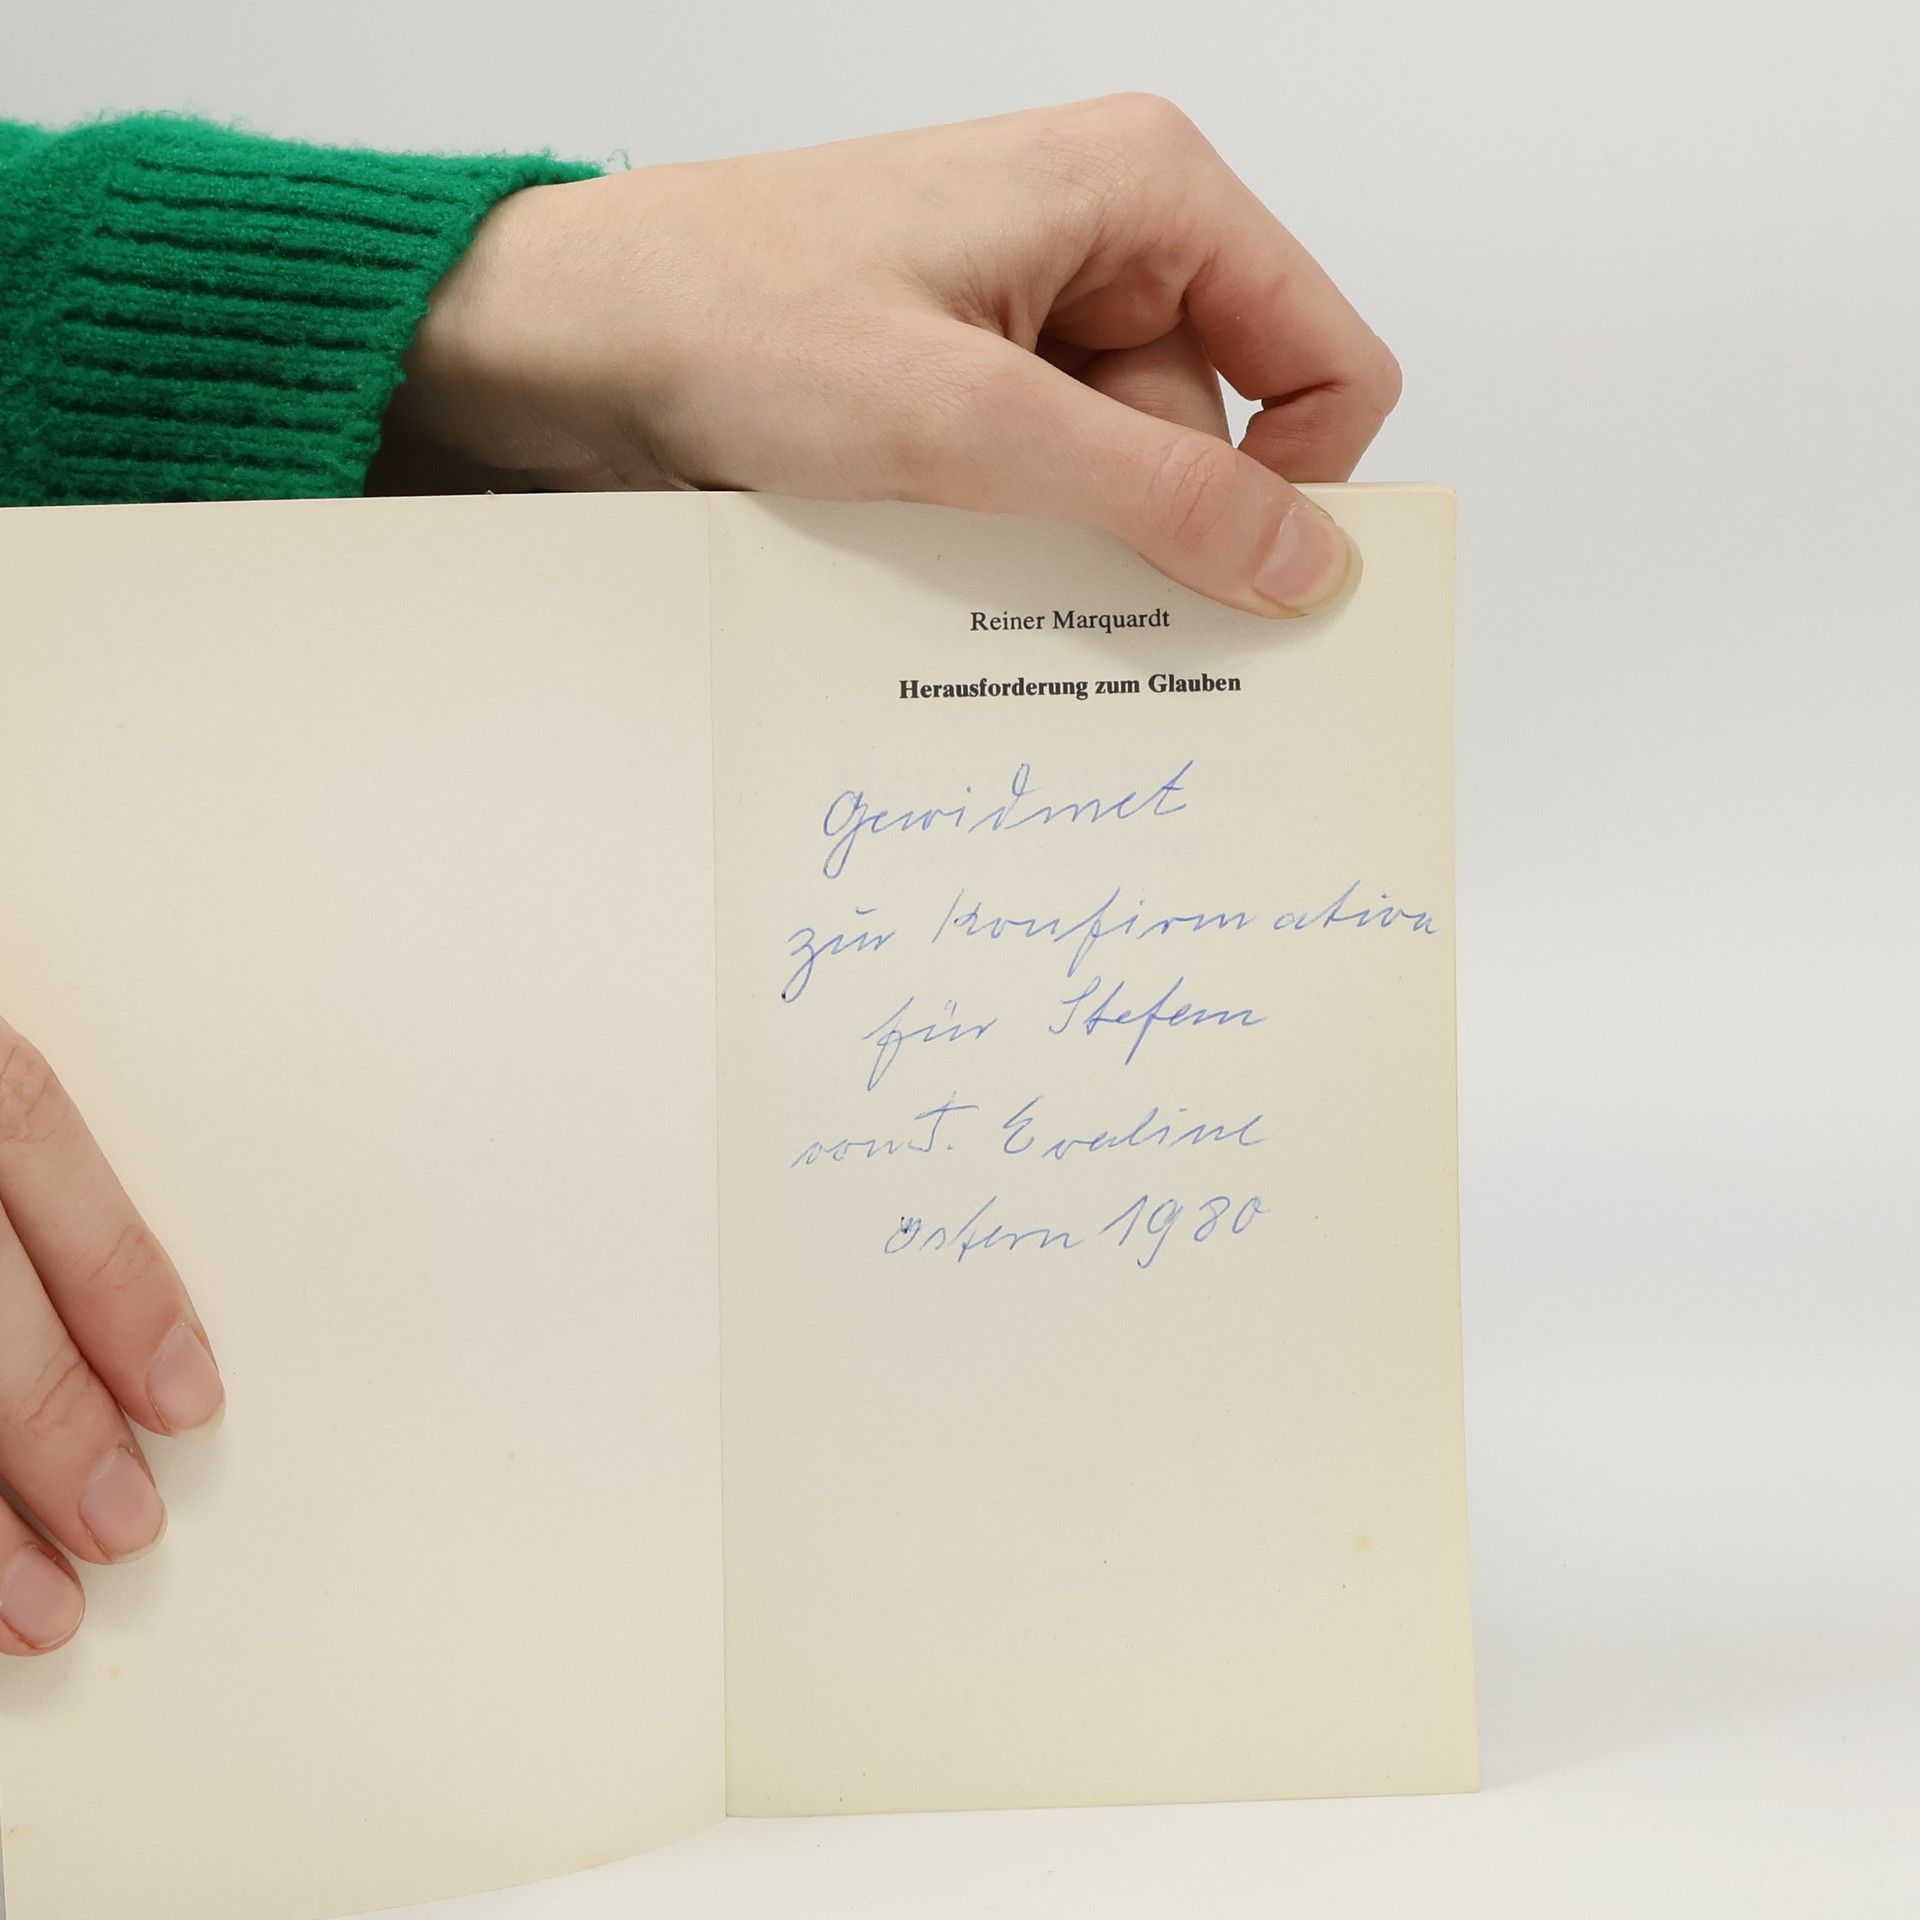 Reiner Marquardt
Herausforderung zum Glauben
Gewidmet
zur Konfirmation
für Stefan
von T. Eveline
Ostern 1980